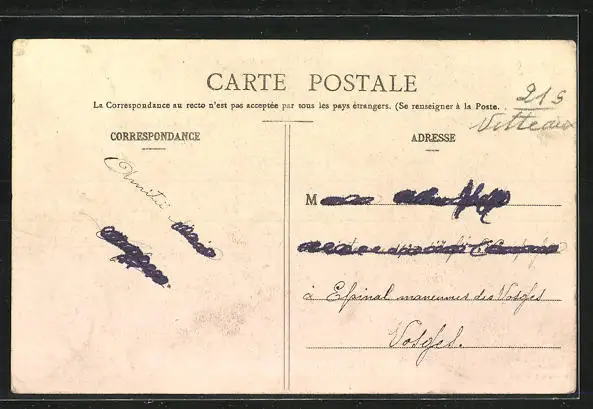 CARTE POSTALE
La Correspondance au recto n'est pas acceptée par tous les pays étrangers. (Se renseigner à la Poste.
215
Vitteaux
CORRESPONDANCE
ADRESSE
Amitié
M
à Epinal manœuvres des Vosges
Vosges.